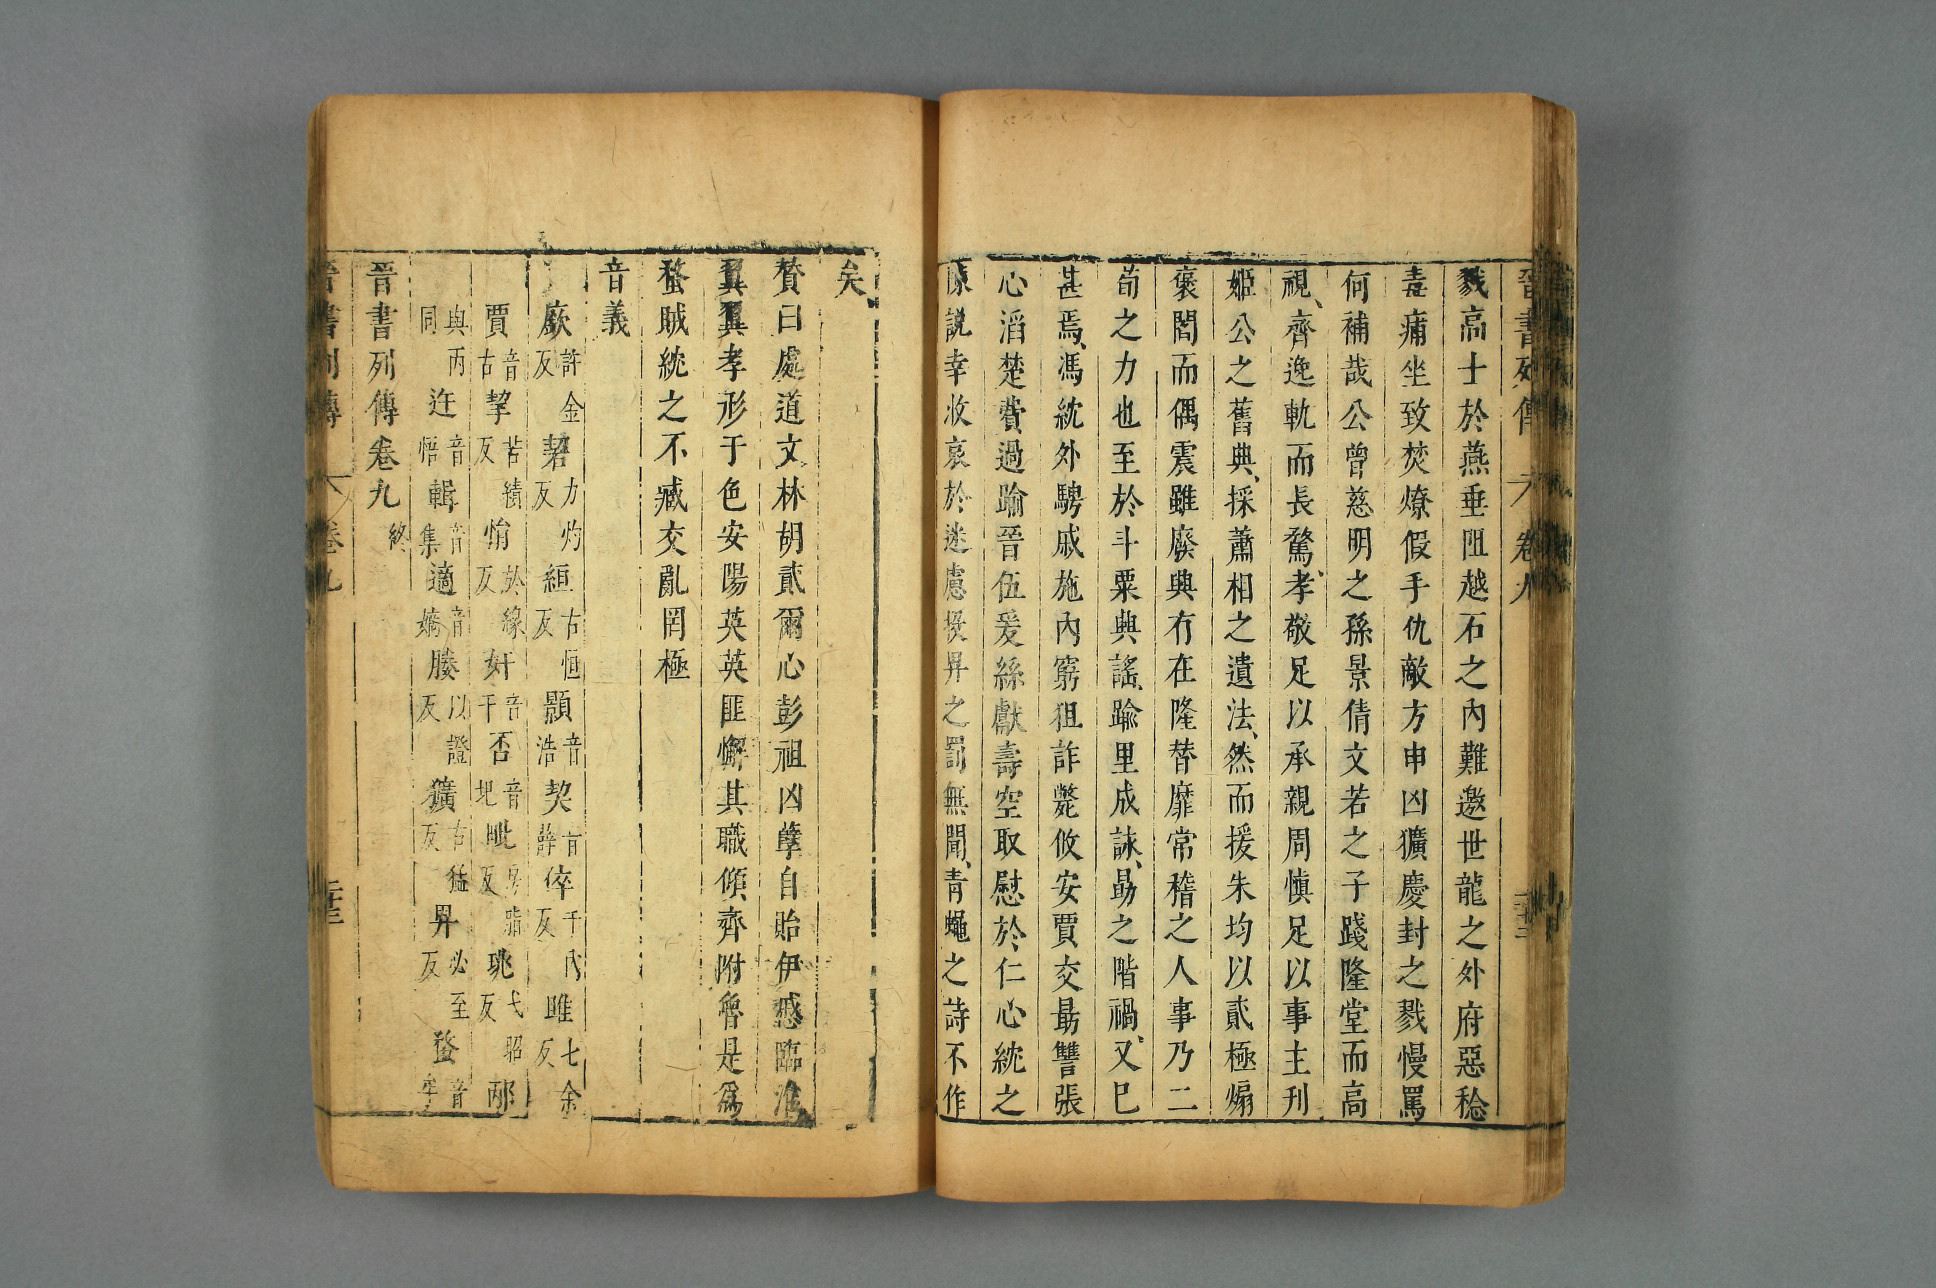 晉書列傳 卷九
戮高士於燕垂阻越石之內難邀世龍之外府惡稔
毒痡坐致焚燎假手仇敵方申凶獷慶封之戮慢罵
何補哉公曾慈明之孫景倩文若之子踐隆堂而高
視齊逸軌而長騖孝敬足以承親周慎足以事主刋
姬公之舊典採蕭相之遺法然而援朱均以貳極煽
褒閻而偶震雖廢興有在隆替靡常稽之人事乃二
荀之力也至於斗粟興謠踰里成詠勗之階禍又已
甚焉馮紞外騁戚施內窮狙詐斃攸安賈交勗讐張
心滔楚費過踰晉伍爰絲獻壽空取慰於仁心紞之
陳說幸收哀於迷慮投畀之罰無聞青蠅之詩不作
矣
贊曰處道文林胡貳爾心彭祖凶孽自貽伊慼臨淮
翼翼孝形于色安陽英英匪懈其職傾齊附魯是爲
蝥賊紞之不臧交亂罔極
音義
廞許金反 䂮力灼反 絙古恒反 顥音浩 契音薛 倅千內反 雎七金反
賈音古 挈苦績反 悁於緣反 奸音干 否音圯 毗房脂反 珧弋昭反 邴
與丙同 迕音悟 輯音集 適音嫡 媵以證反 獷古猛反 畀必至反 蝥音牟
晉書列傳卷九 終
晉書列傳 卷九 二十三